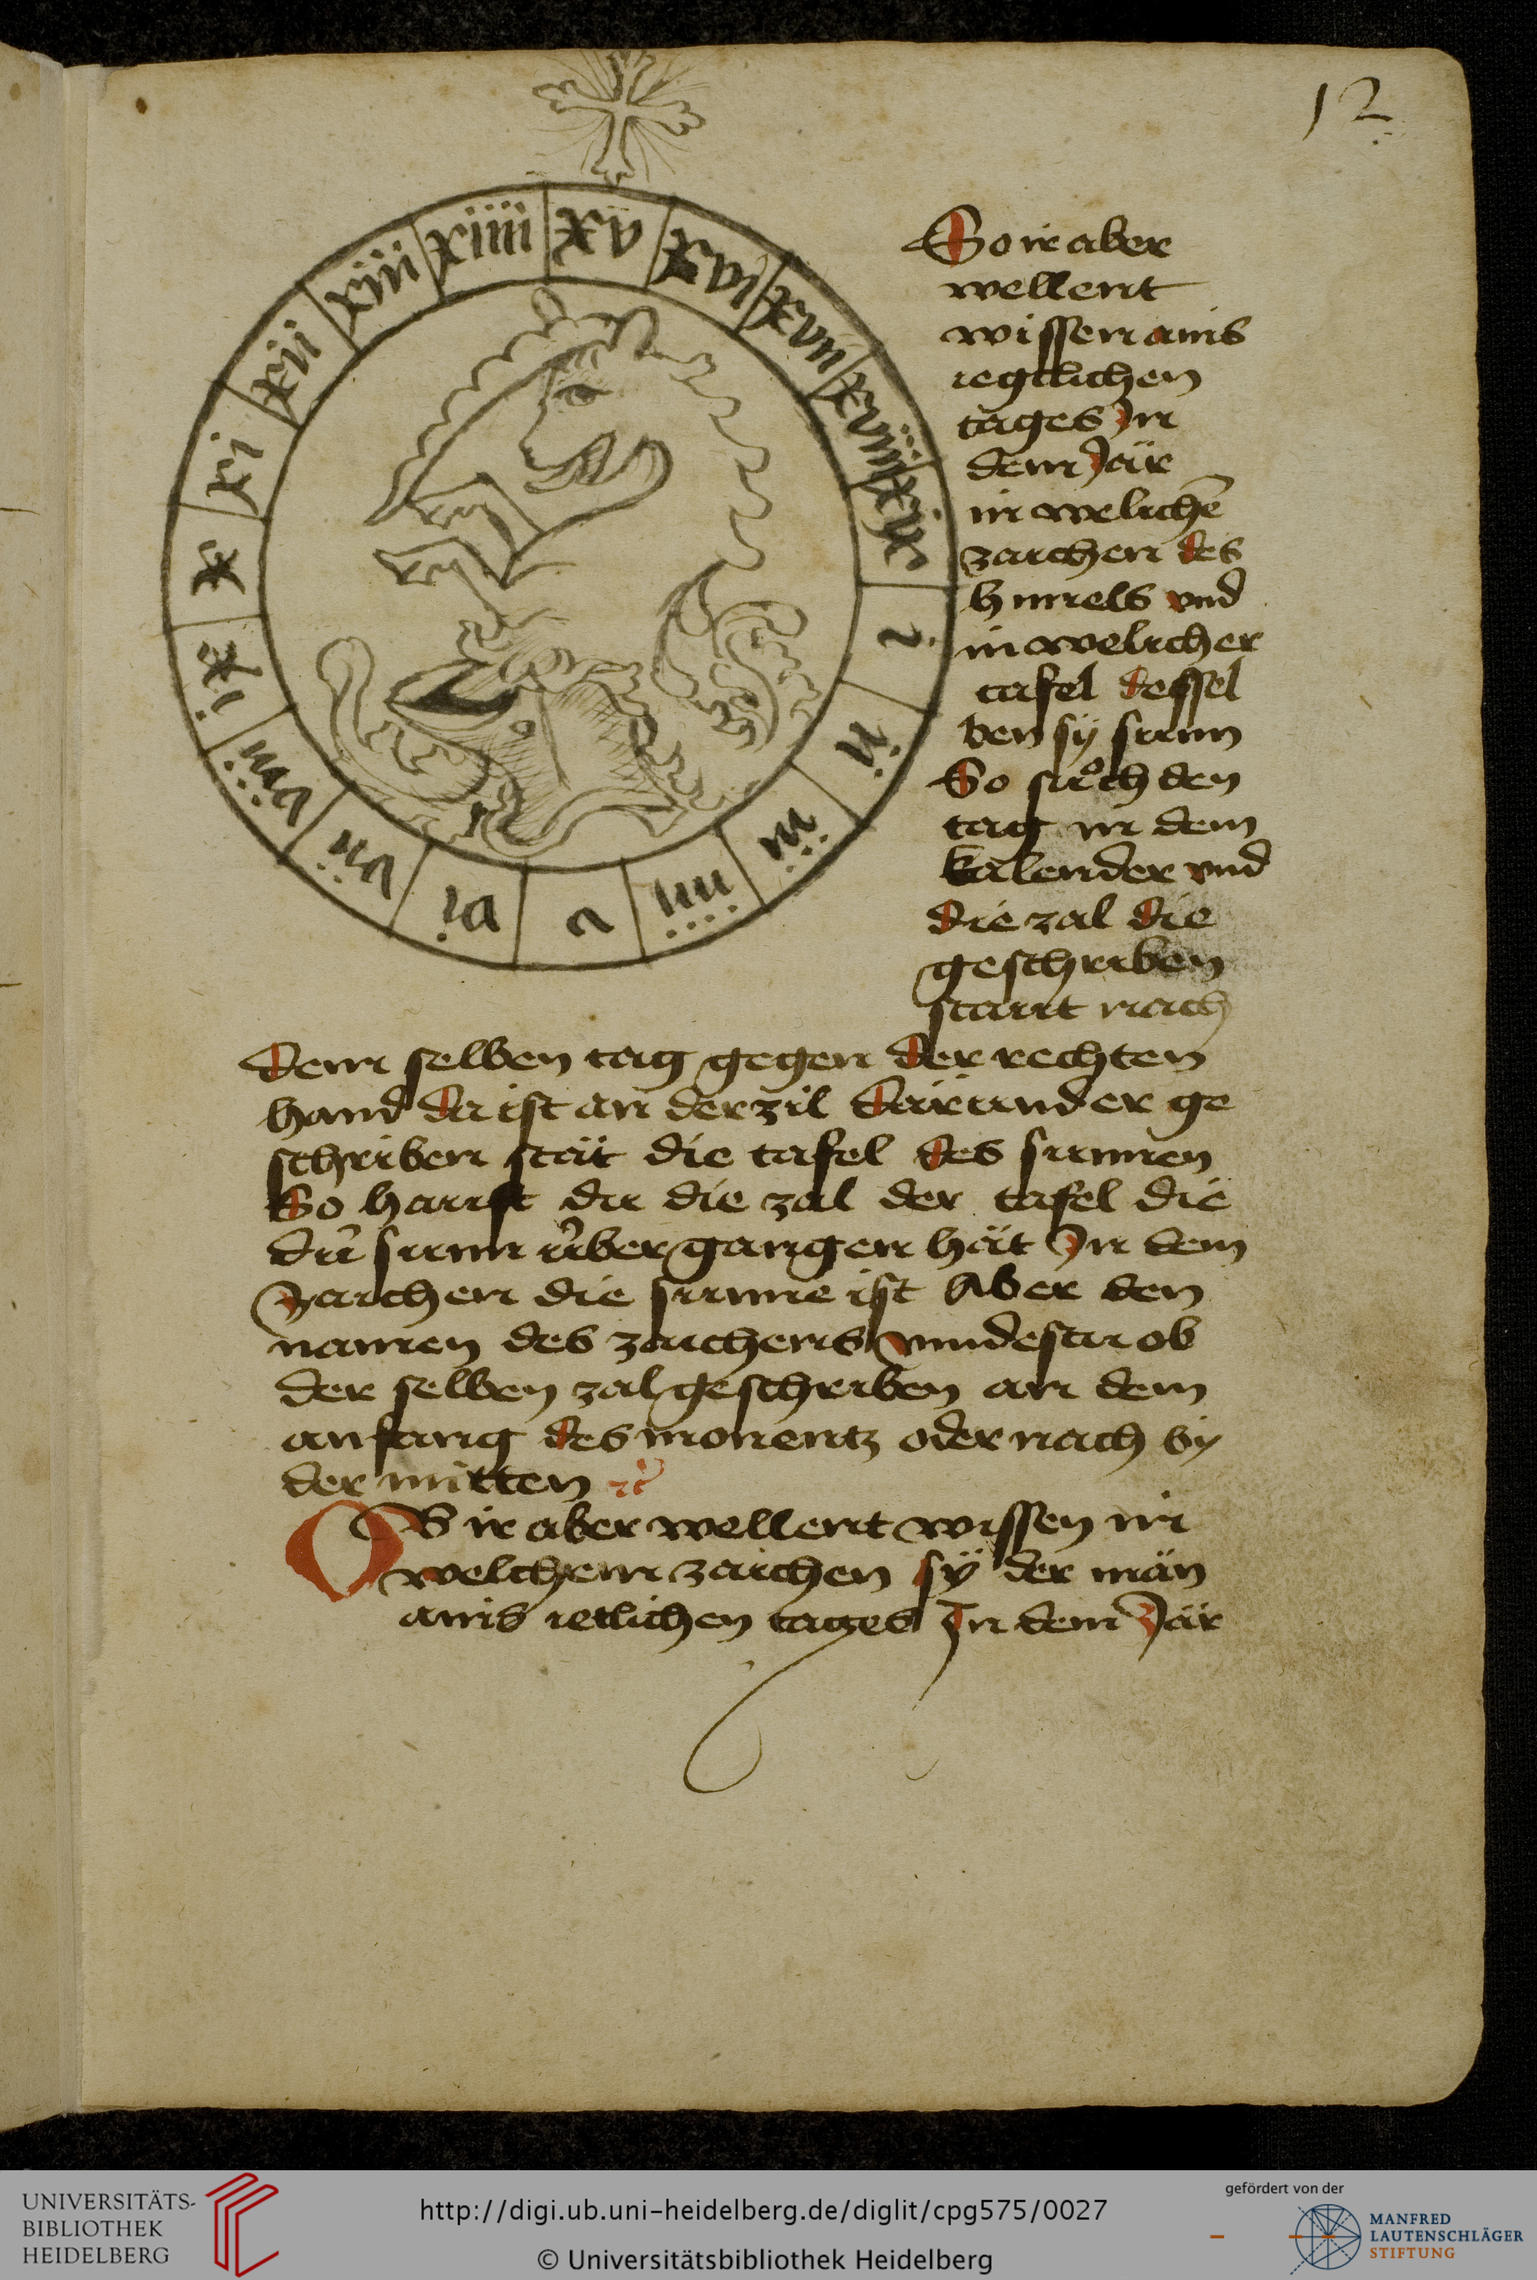 12
xv
xvi
xvii
xviii
xix
i
ii
iii
iiii
v
vi
vii
viii
ix
x
xi
xii
xiii
xiiii
So ir aber
wellent
wissen ains
iegclichen
tages In
dem Jär
in welichē
zaichen des
himels vnd
in welicher
tafel dessel
ben sy sunn
So suͦch den
tag in dem
kalender vnd
die zal die
geschriben
statt nach
dem selben tag gegen der rechten
hand da ist an der zil dar under ge
schriben stät die tafel des sunnen
So haust du die zal der tafel die
sunn über gangen hät In dem
zaichen die sunne ist Aber den
namen des zaichens ob
der selben zal geschriben an dem
anfang des monentz oder nach by
der mitten
OB ir aber wellent wissen in
welchem zaichen sÿ der män
ains ietlichen tages In dem Jär
UNIVERSITÄTS-
BIBLIOTHEK
HEIDELBERG
http://digi.ub.uni-heidelberg.de/diglit/cpg575/0027
© Universitätsbibliothek Heidelberg
gefördert von der
MANFRED
LAUTENSCHLÄGER
STIFTUNG